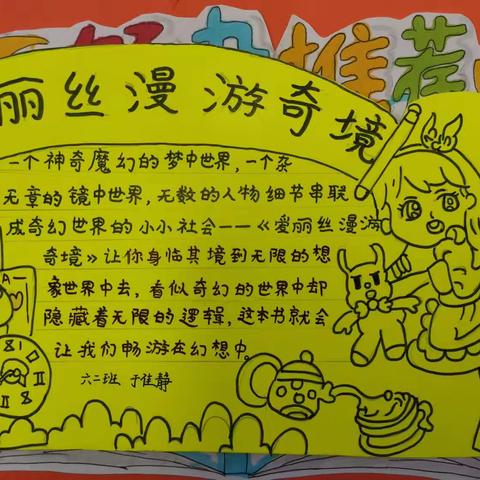 好书推荐
丽丝漫游奇境
一个神奇魔幻的梦中世界,一个杂
无章的镜中世界,无数的人物细节串联
成奇幻世界的小小社会——《爱丽丝漫游
奇境》让你身临其境到无限的想
象世界中去,看似奇幻的世界中却
隐藏着无限的逻辑,这本书就会
让我们畅游在幻想中。
六二班 于佳静